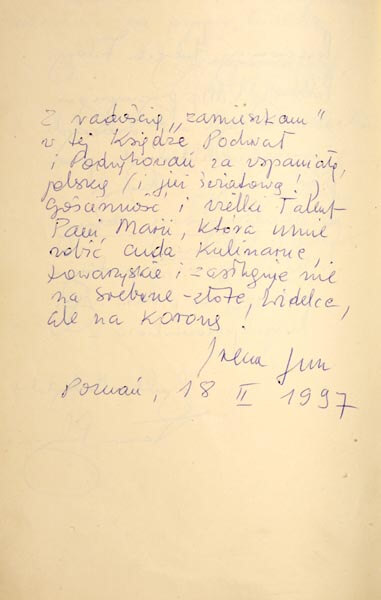 Z radością „zamieszkam”
w tej Księdze Pochwał
i Podziękowań za wspaniałą,
polską (i już światową!)
gościnność i wielki Talent
Pani Marii, która umie
robić cuda kulinarne,
towarzyskie i zasługuje nie
na srebrne-złote, widelce,
ale na Koronę!
Irena Jun
Poznań, 18 II 1997